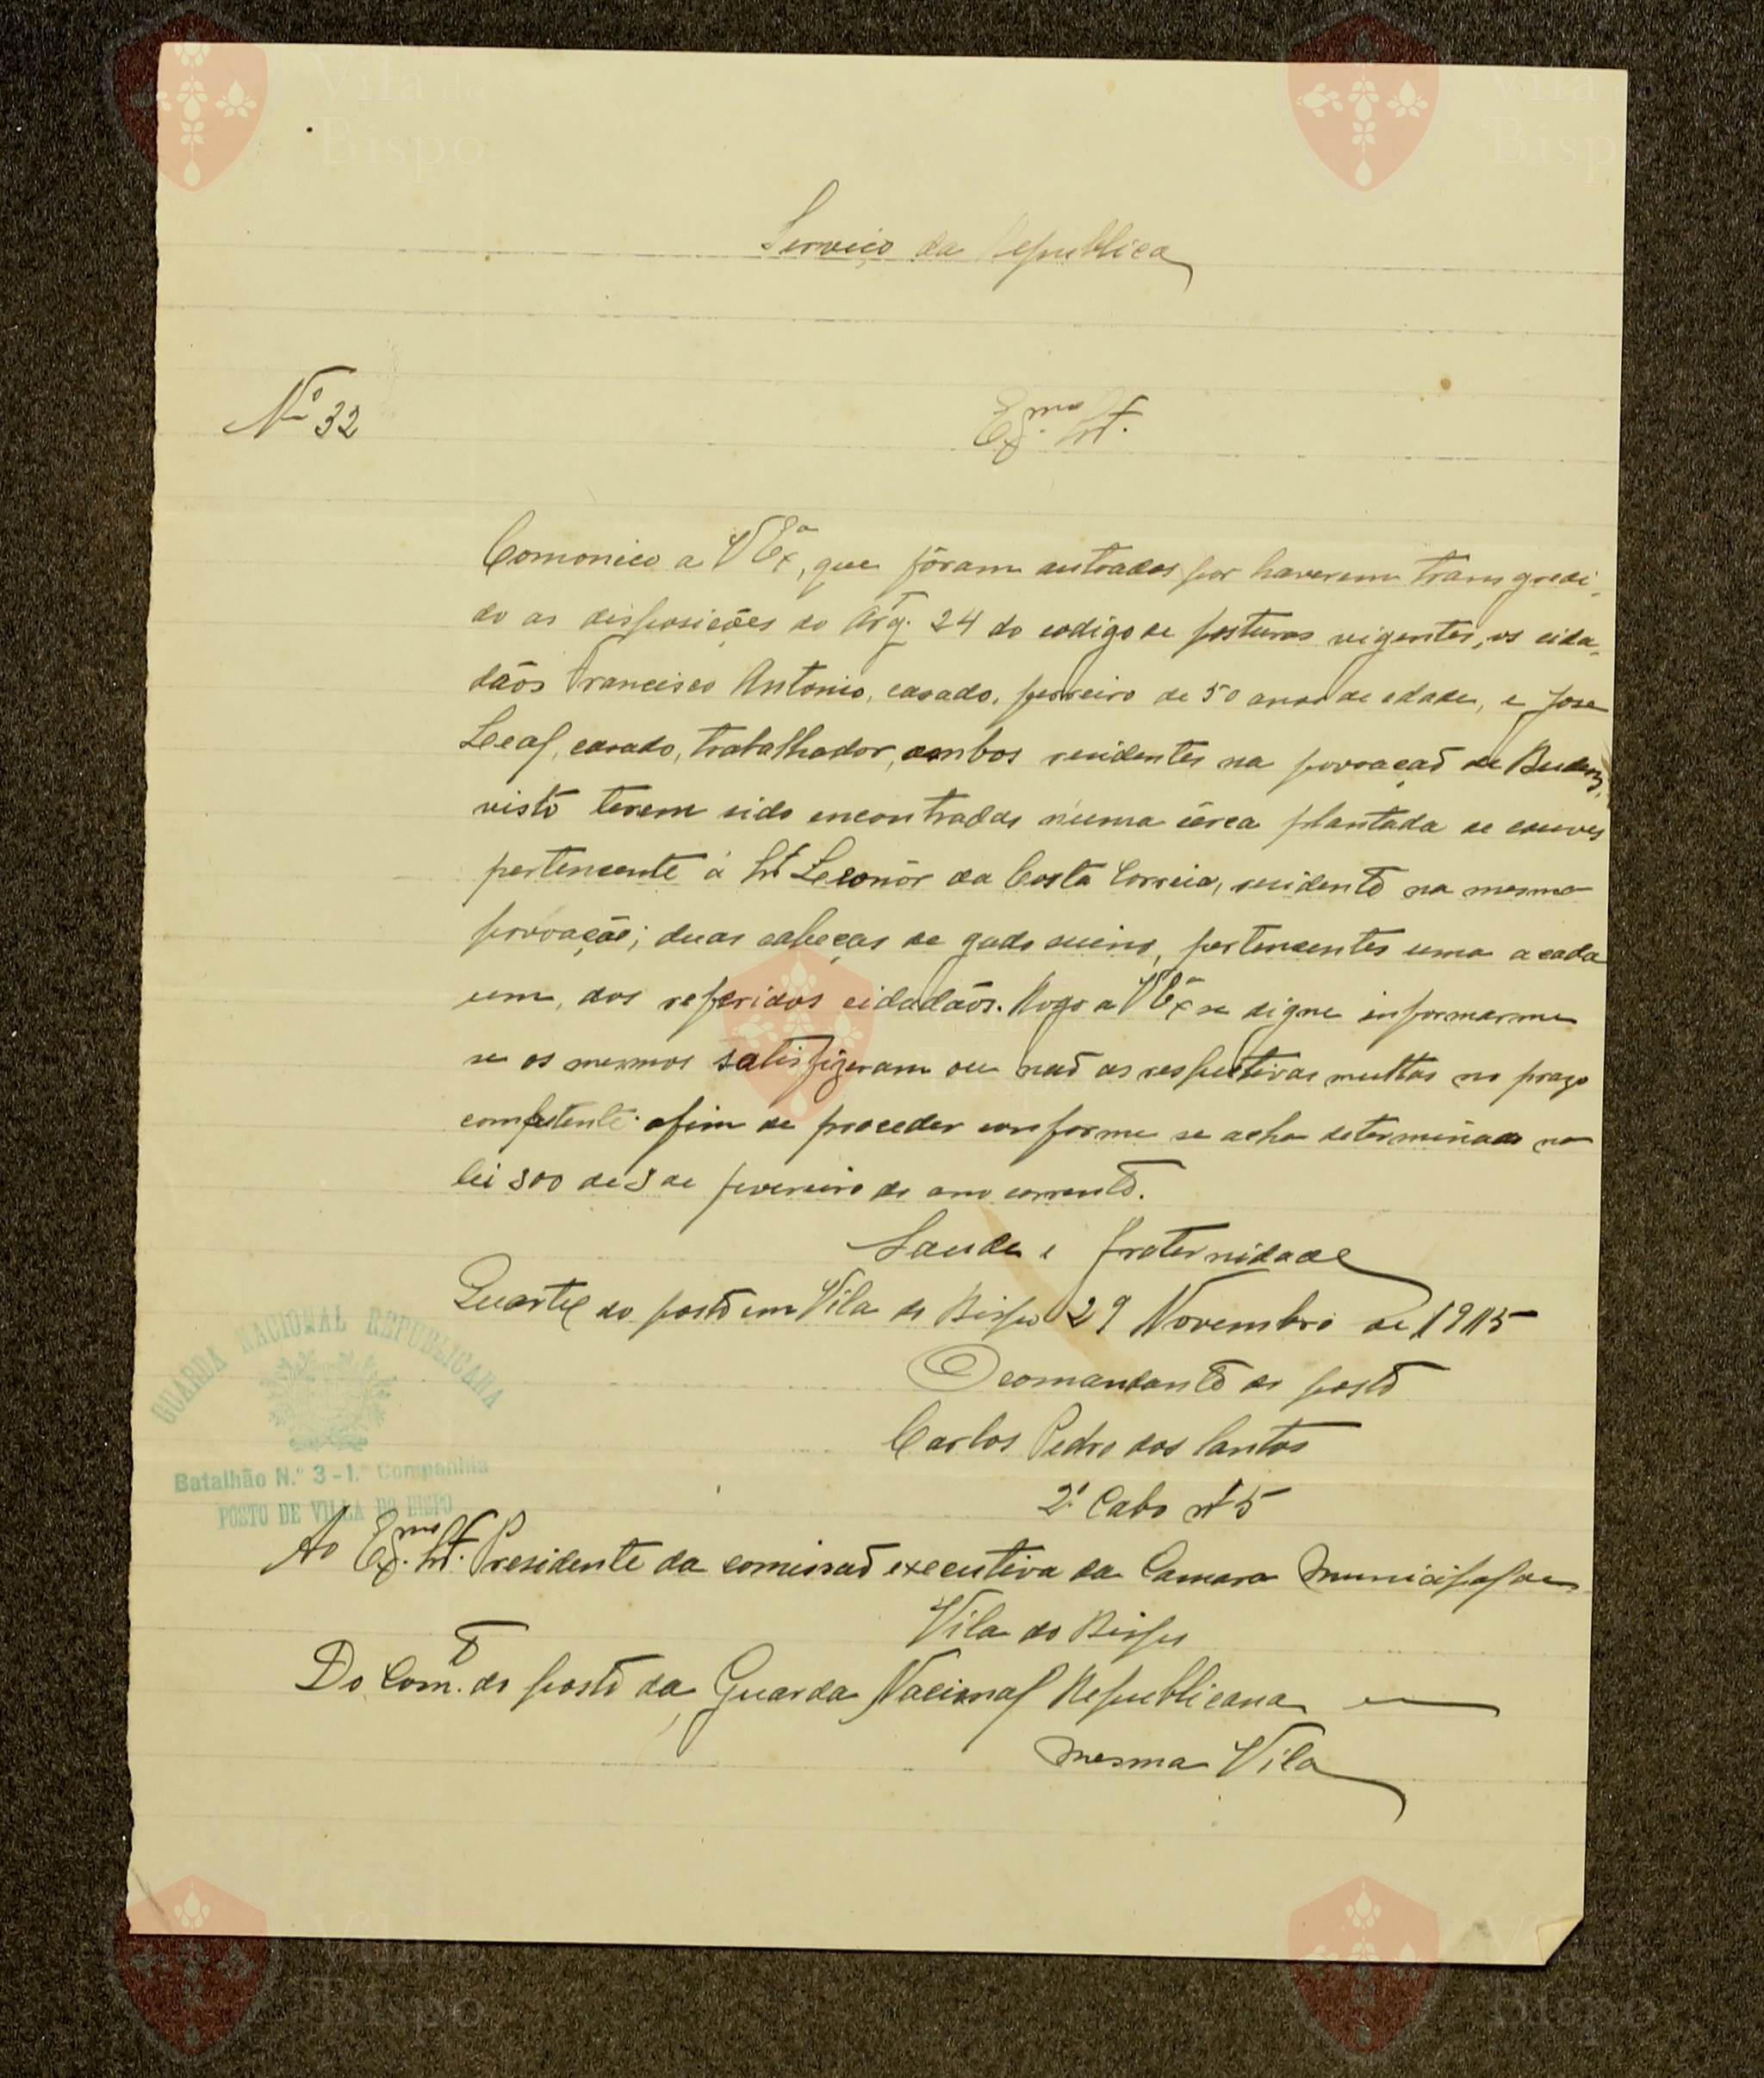 Vila do Bispo
Vila do Bispo
Serviço da Republica
Nº 32
Exmo Snr.
Comonico a V Exª, que fôram autoados por haverem transgredi-
do as disposições do Artg. 24 do codigo de posturas vigentes, os cida-
dãos Francisco Antonio, casado, ferreiro de 50 anos de edade, e José
Leal, casado, trabalhador, ambos residentes na povoação de Budens,
visto terem sido encontradas n'uma cêrca plantada de couves
pertencente á Srª Leonôr da Costa Correia, residente na mesma
povoação; duas cabeças de gado suino, pertencentes uma a cada
um, dos referidos cidadãos. Rogo a V Exª se digne informarme
se os mesmos satisfizeram ou não as respectivas multas no prazo
competente afim de proceder conforme se acha determinado na
lei 300 de 3 de fevereiro do ano corrente.
Saude e fraternidade
Quartel do posto em Vila do Bispo 29 Novembro de 1915
O comandante do posto
Carlos Pedro dos Santos
2º Cabo nº 5
GUARDA NACIONAL REPUBLICANA
Batalhão N.º 3 - 1.ª Companhia
POSTO DE VILLA DO BISPO
Ao Exmo Snr. Presidente da comissão executiva da Camara Municipal de
Vila do Bispo
Do Comte do posto da Guarda Nacional Republicana em
mesma Vila
Vila do Bispo
Vila do Bispo